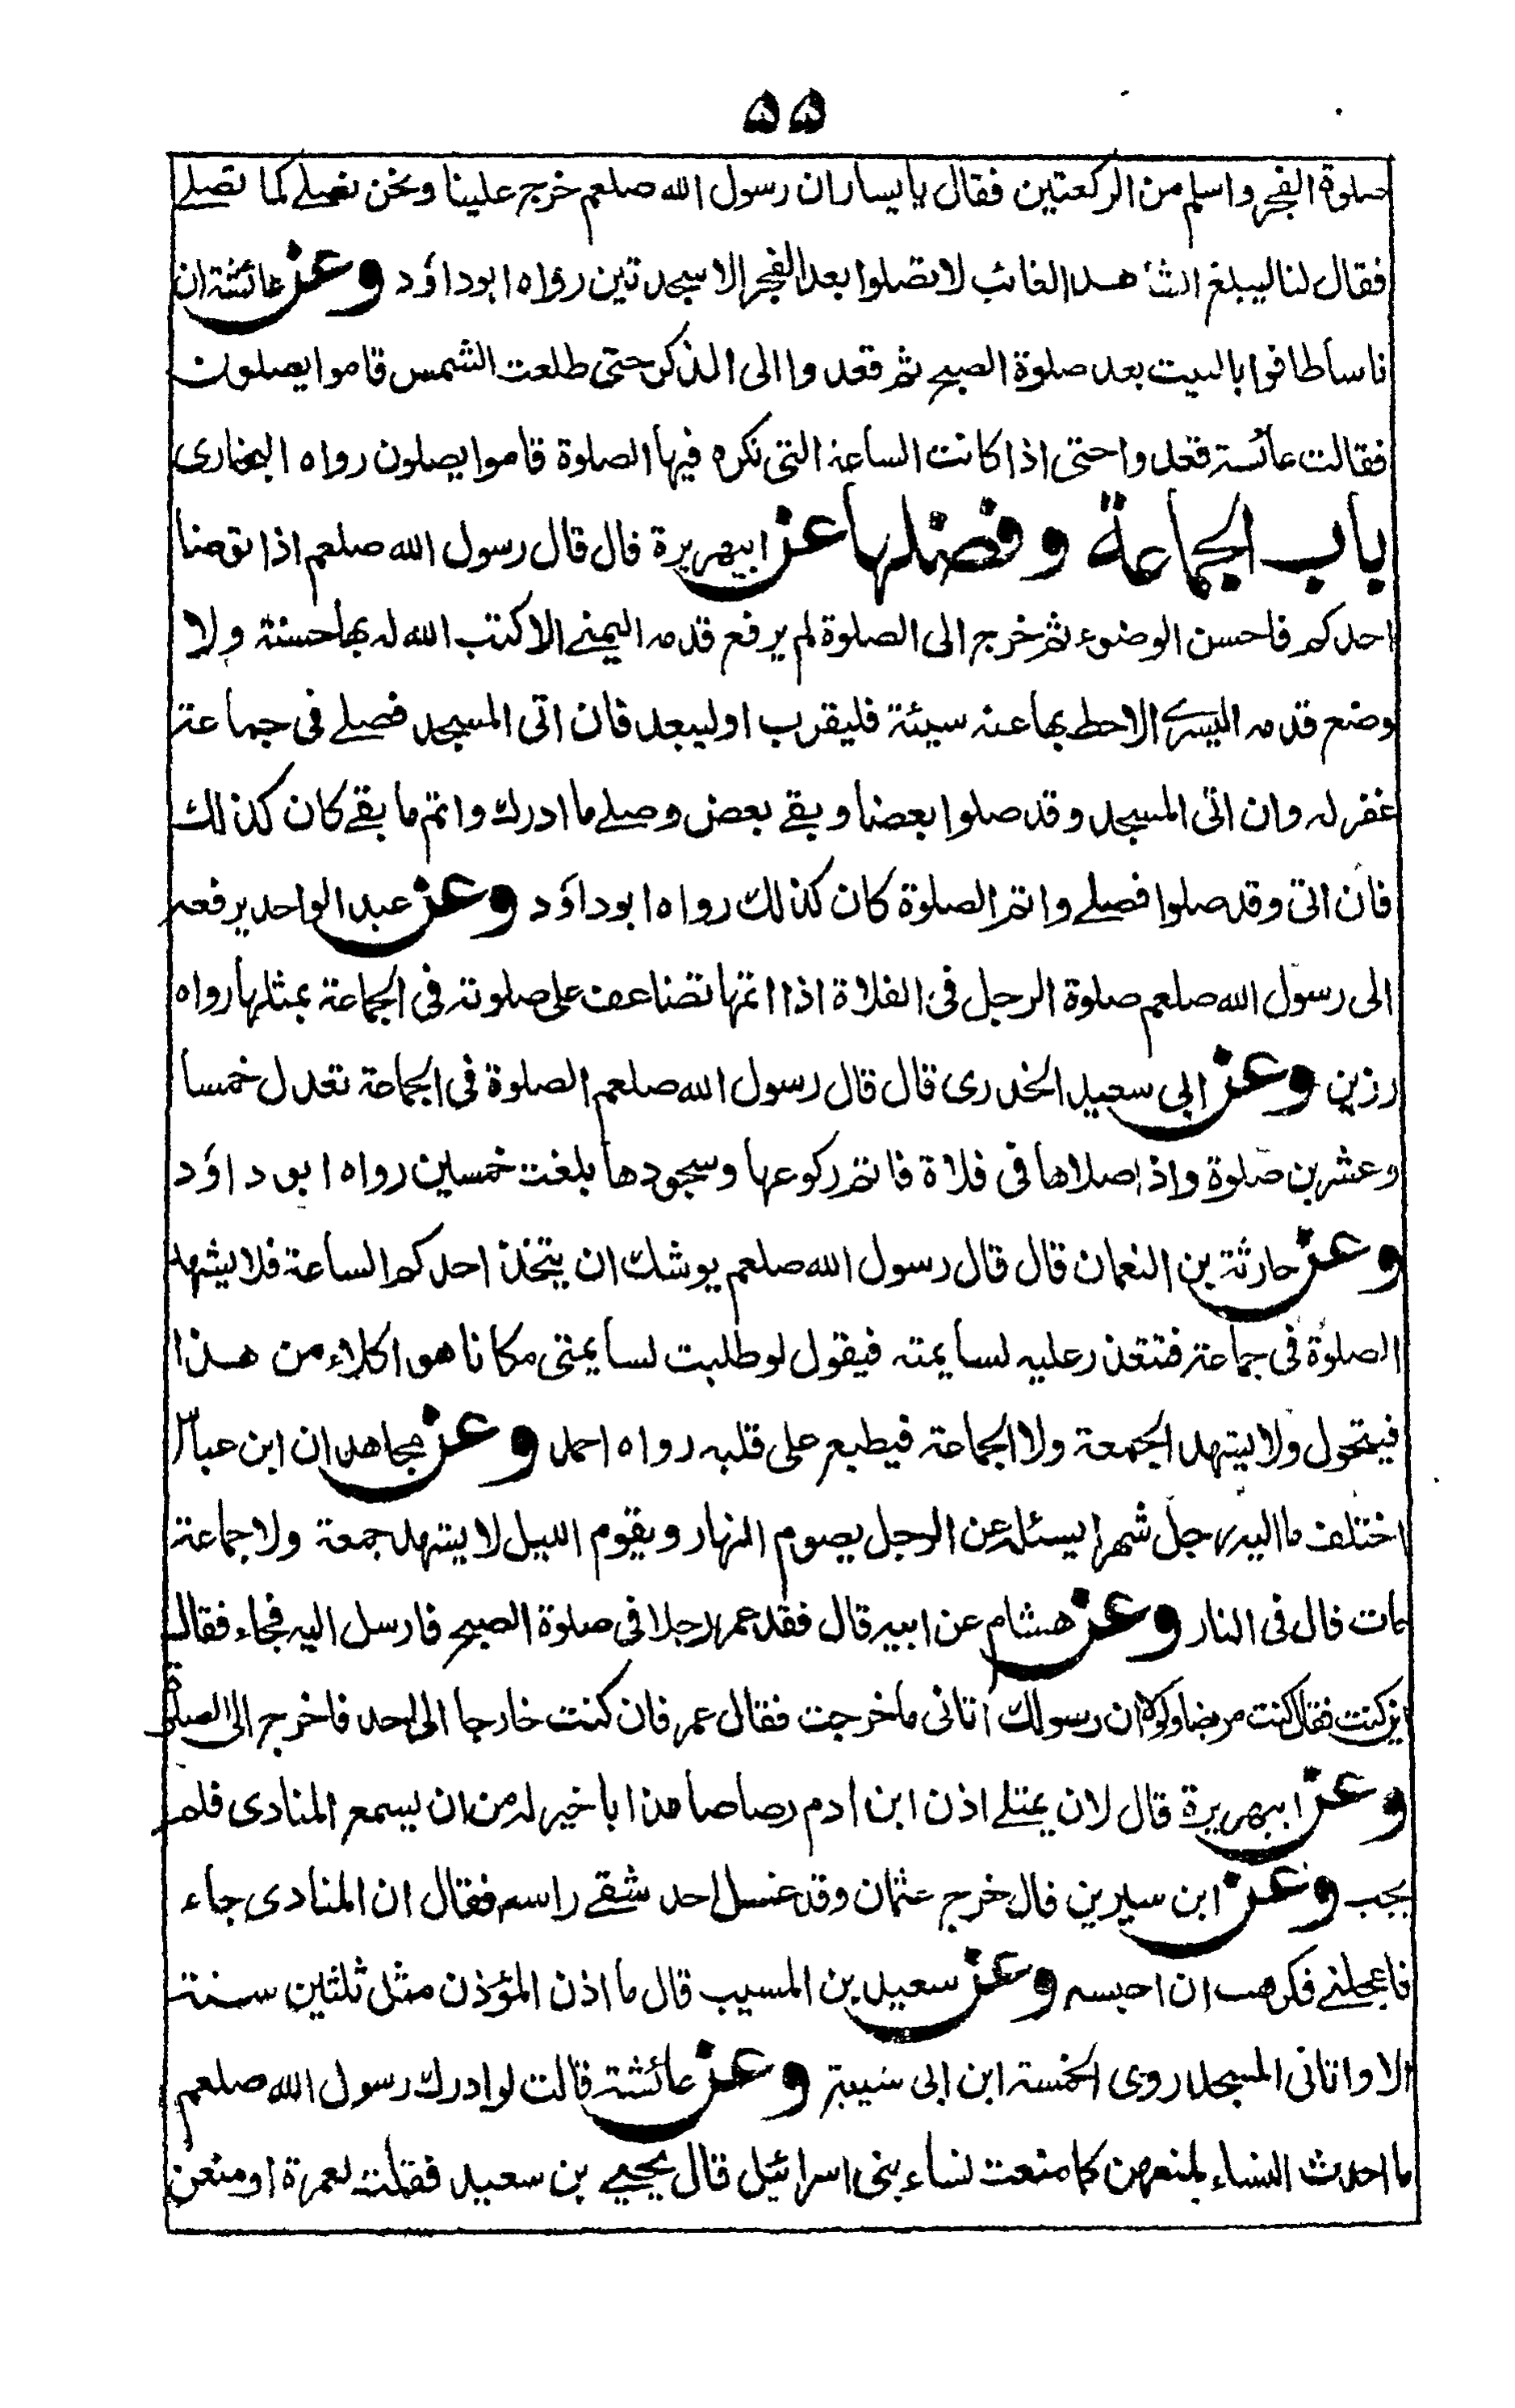 ۵۵
صلوة الفجر واسلم من الركعتين فقال يا يسار ان رسول الله صلعم خرج علينا ونحن نصلے كما تصلے
فقال لنا ليبلغ الشاهد الغائب لا تصلوا بعد الفجر الا سجدتين رواه ابوداؤد وعن عائشة ان
ناسا طافوا بالبيت بعد صلوة الصبح ثم قعدوا الى الذكر حتى طلعت الشمس قاموا يصلون
فقالت عائشة قعدوا حتى اذا كانت الساعة التى تكره فيها الصلوة قاموا يصلون رواه البخارى
باب الجماعة وفضلها عن ابيهريرة قال قال رسول الله صلعم اذا توضا
احدكم فاحسن الوضوء ثم خرج الى الصلوة لم يرفع قدمه اليمنے الا كتب الله له بها حسنة ولا
وضع قدمه اليسرے الا حط بها عنه سيئة فليقرب او ليبعد فان اتى المسجد فصلے فى جماعة
غفر له وان اتى المسجد وقد صلوا بعضا وبقے بعض وصلے ما ادرك واتم ما بقے كان كذلك
فان اتى وقد صلوا فصلے واتم الصلوة كان كذلك رواه ابوداؤد وعن عبد الواحد يرفعه
الى رسول الله صلعم صلوة الرجل فى الفلاة اذا اتمها تضاعف على صلوته فى الجماعة بمثلها رواه
رزين وعن ابى سعيد الخدرى قال قال رسول الله صلعم الصلوة فى الجماعة تعدل خمسا
وعشرين صلوة واذا صلاها فى فلاة فاتم ركوعها وسجودها بلغت خمسين رواه ابو داؤد
وعن حارثة بن النعمان قال قال رسول الله صلعم يوشك ان يتخذ احدكم الساعة فلا يشهد
الصلوة فى جماعة فتتعذر عليه لسايمته فيقول لو طلبت لسايمتى مكانا هو اكلاء من هذا
فيتحول ولا يشهد الجمعة ولا الجماعة فيطبع على قلبه رواه احمد وعن مجاهد ان ابن عباس
اختلف ما اليه رجل شهرا يسئله عن الرجل يصوم النهار ويقوم الليل لا يشهد جمعة ولا جماعة
مات قال فى النار وعن هشام عن ابيه قال فقد عمر رجلا فى صلوة الصبح فارسل اليه فجاء فقال
اين كنت فقال كنت مريضا ولولا ان رسولك اتانى ما خرجت فقال عمر فان كنت خارجا الى احد فاخرج الى الصلوة
وعن ابيهريرة قال لان يمتلے اذن ابن ادم رصاصا مذابا خير له من ان يسمع المنادى فلم
يجب وعن ابن سيرين قال خرج عثمان وقد غسل احد شقے راسه فقال ان المنادى جاء
فاعجلنے فكرهت ان احبسه وعن سعيد بن المسيب قال ما اذن المؤذن مثل ثلثين سنة
الا وانا فى المسجد روى الخمسة ابن ابى شيبة وعن عائشة قالت لو ادرك رسول الله صلعم
ما احدث النساء لمنعهن كما منعت نساء بنى اسرائيل قال يحيے بن سعيد فقلت لعمرة او منعن